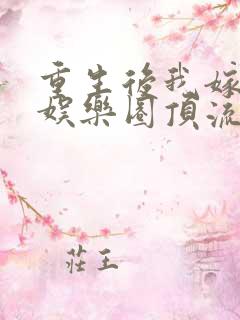 重生後我嫁
娛樂圈頂流
莊王